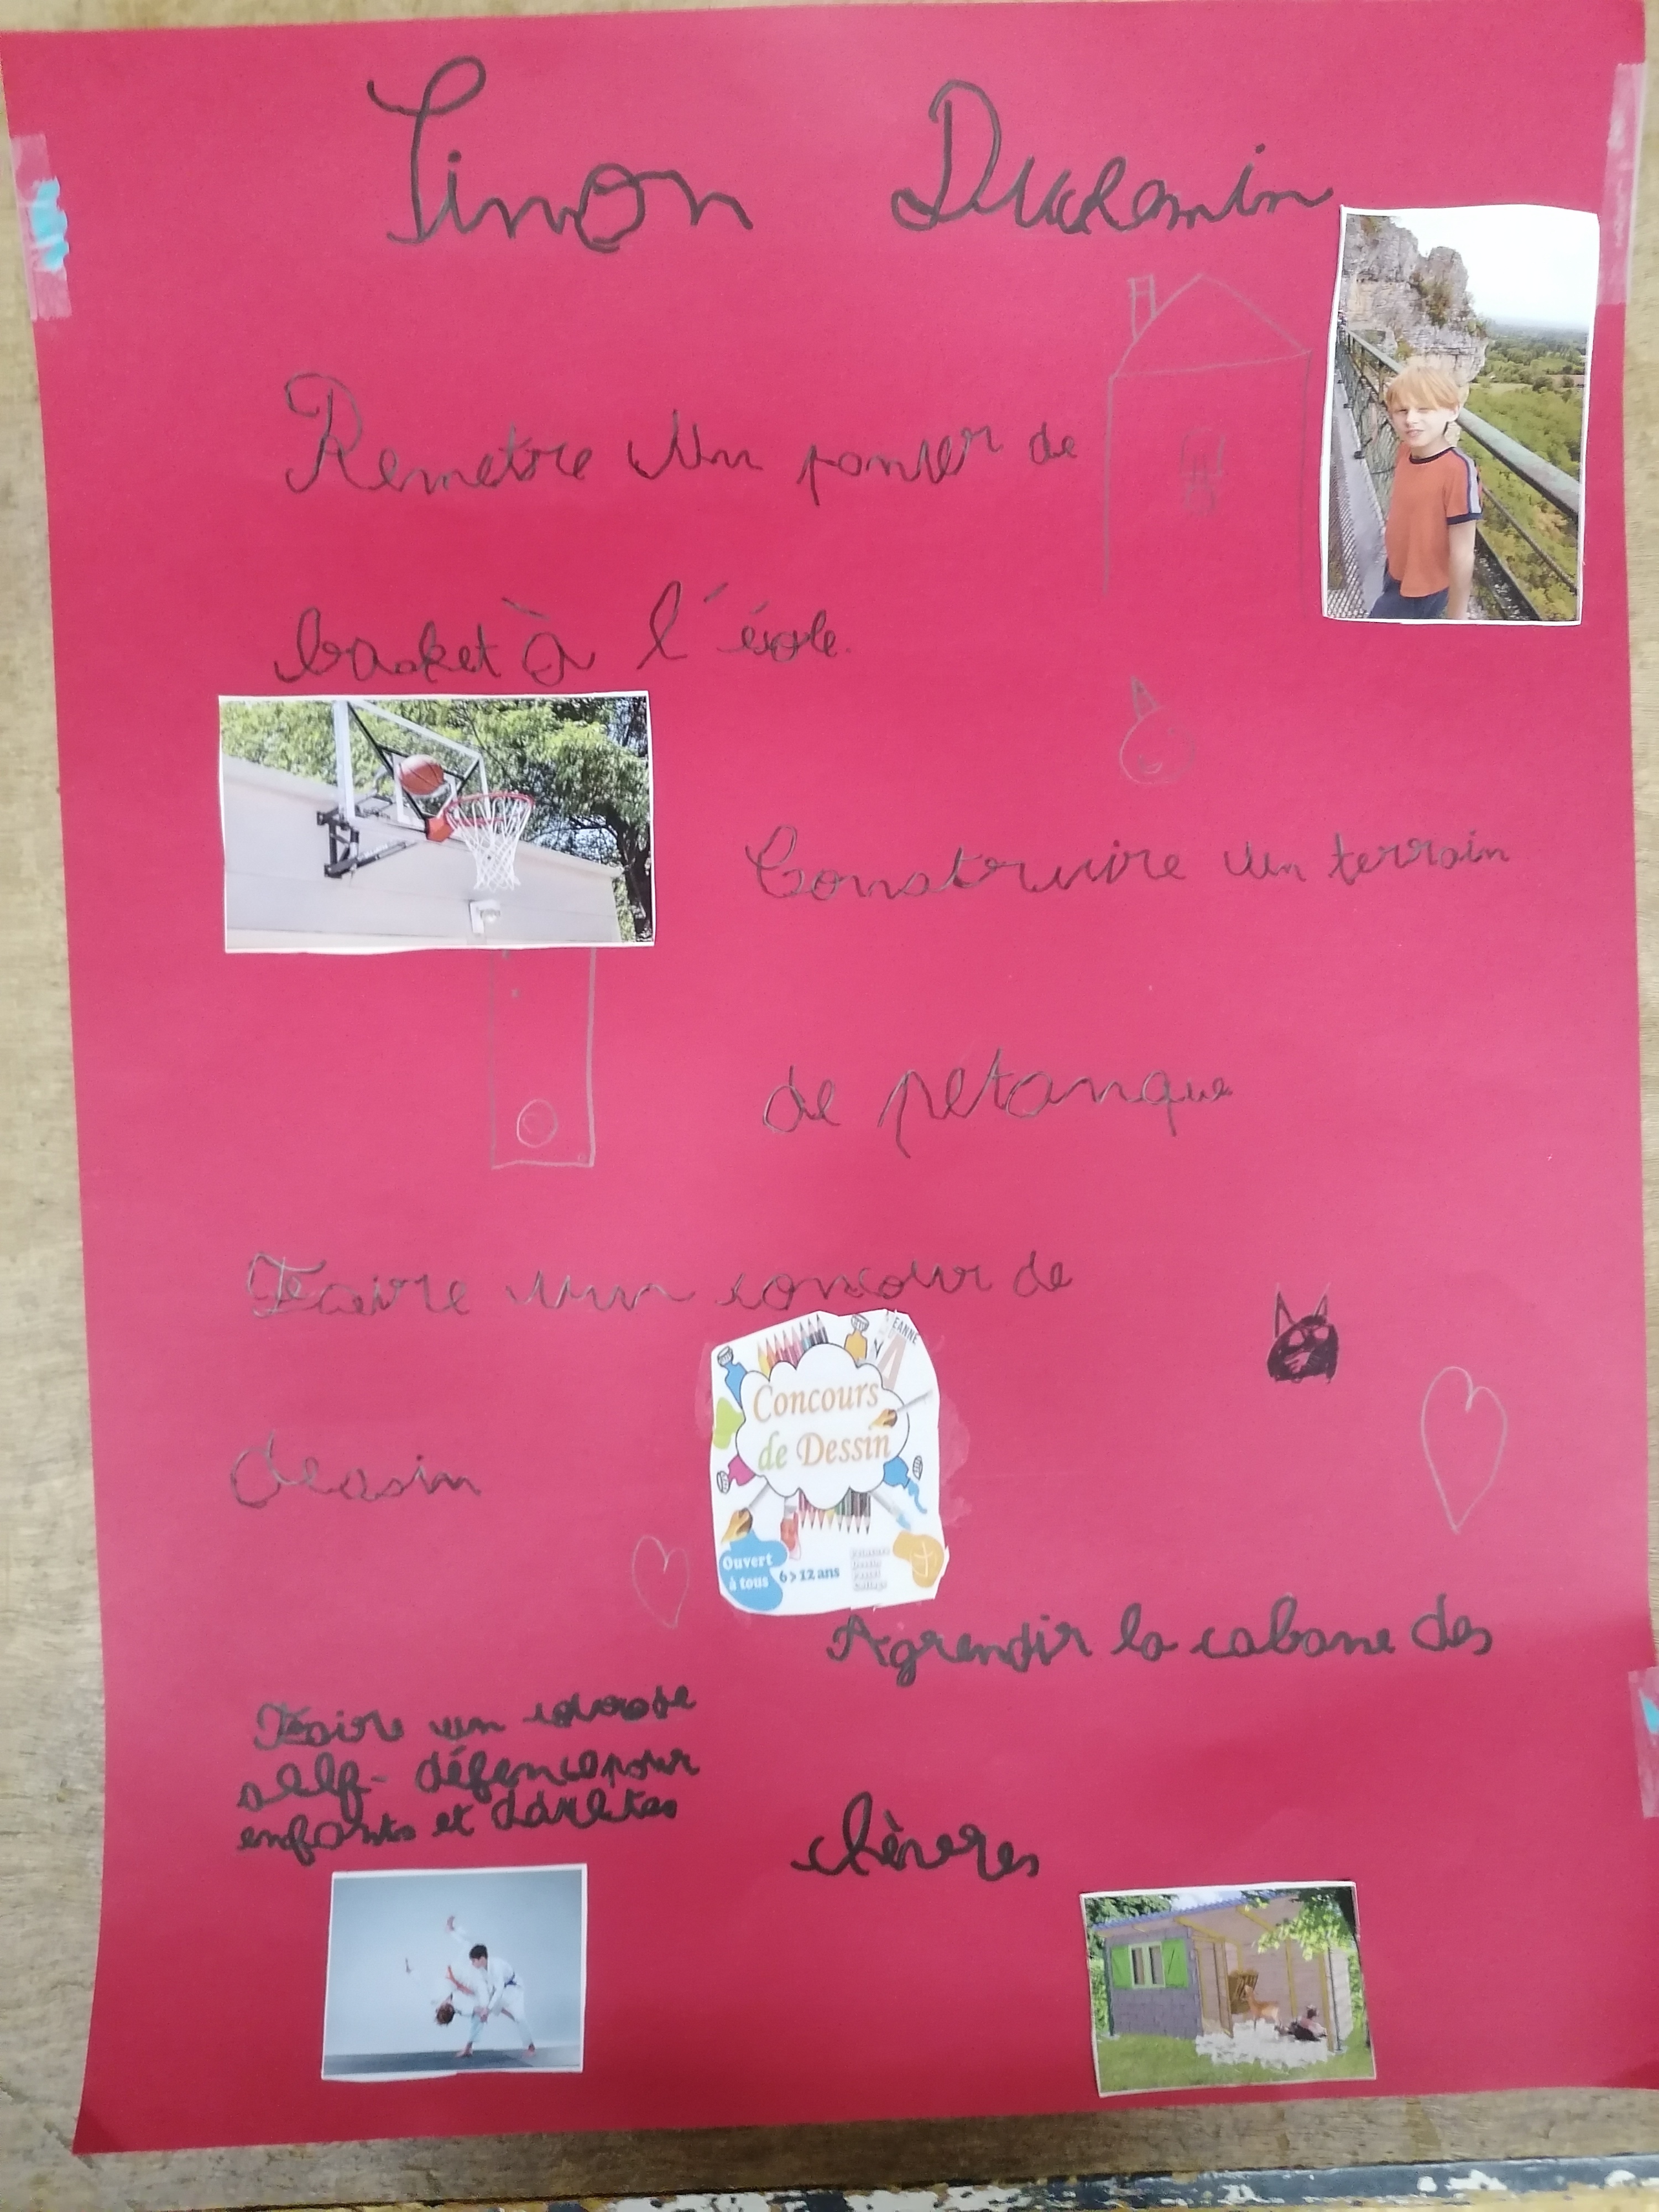 Simon Duchemin
Remetre un panier de
basket à l'école.
Construire un terrain
de petanque
Faire un concour de
dessin
EANNE
Concours
de Dessin
Ouvert
à tous
6>12 ans
Peinture
Dessin
Pastel
Collage
Agrendir la cabane des
chèvres
Faire un
self-défence pour
enfants et adultes